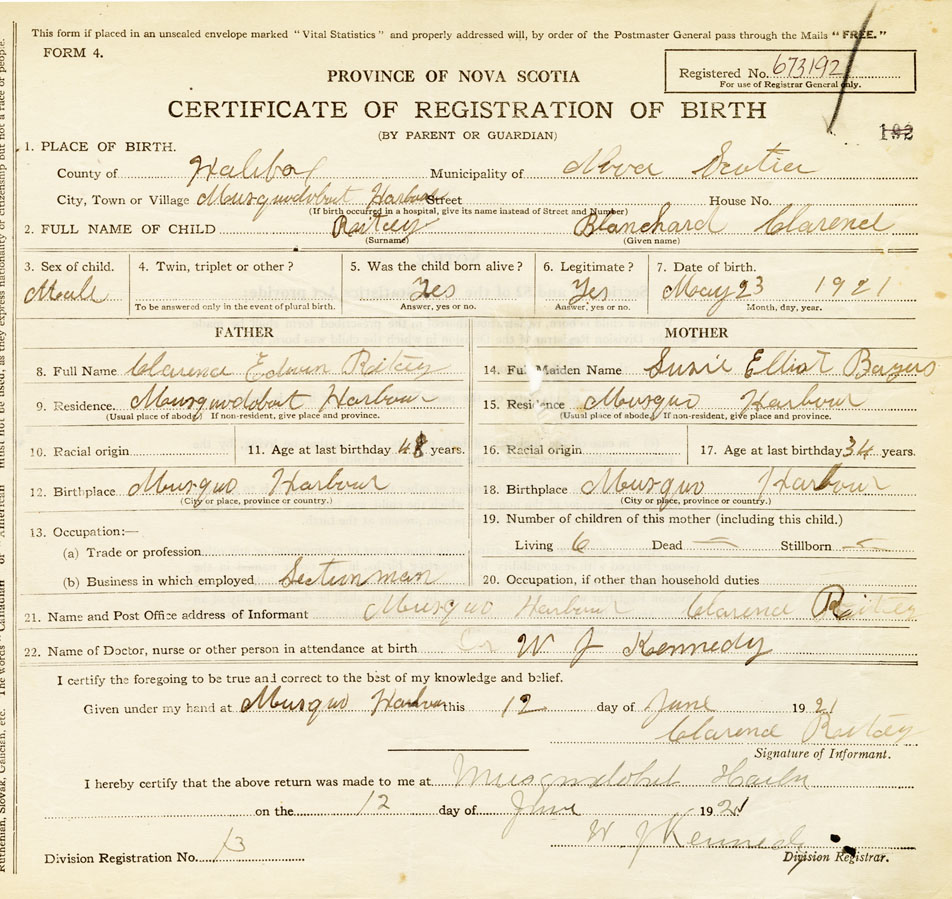 This form if placed in an unsealed envelope marked "Vital Statistics" and properly addressed will, by order of the Postmaster General pass through the Mails "FREE."
FORM 4.
Registered No. 673192
For use of Registrar General only.
PROVINCE OF NOVA SCOTIA
CERTIFICATE OF REGISTRATION OF BIRTH
(BY PARENT OR GUARDIAN)
192
1. PLACE OF BIRTH.
County of Halifax Municipality of Nova Scotia
City, Town or Village Musquodobut Harbour Street House No.
(If birth occurred in a hospital, give its name instead of Street and Number)
2. FULL NAME OF CHILD Ritcey Blanchard Clarend
(Surname) (Given name)
3. Sex of child. 4. Twin, triplet or other? 5. Was the child born alive? 6. Legitimate? 7. Date of birth.
Male Yes Yes May 23 1921
To be answered only in the event of plural birth. Answer, yes or no. Answer, yes or no. Month, day, year.
FATHER MOTHER
8. Full Name Clarend Edwin Ritcey 14. Full Maiden Name Susie Elliot Bayers
9. Residence. Musquodobut Harbour 15. Residence Musquo Harbour
(Usual place of abode) If non-resident, give place and province. (Usual place of abode.) If non-resident, give place and province.
10. Racial origin 11. Age at last birthday 48 years. 16. Racial origin 17. Age at last birthday 34 years.
12. Birthplace Musquo Harbour 18. Birthplace Musquo Harbour
(City or place, province or country.) (City or place, province or country.)
13. Occupation:— 19. Number of children of this mother (including this child.)
(a) Trade or profession Living 6 Dead — Stillborn —
(b) Business in which employed Sectionman 20. Occupation, if other than household duties
21. Name and Post Office address of Informant Musquo Harbour Clarend Ritcey
22. Name of Doctor, nurse or other person in attendance at birth Dr W J Kennedy
I certify the foregoing to be true and correct to the best of my knowledge and belief.
Given under my hand at Musquo Harbour this 12 day of June 1921
Clarend Ritcey
Signature of Informant.
I hereby certify that the above return was made to me at Musquodobut Harbr
on the 12 day of June 1921
W J Kennedy
Division Registration No. 13 Division Registrar.
Ruthenian, Slovak, Galician, etc. The words "Canadian" or "American" must not be used, as they express nationality or citizenship but not a race or people.